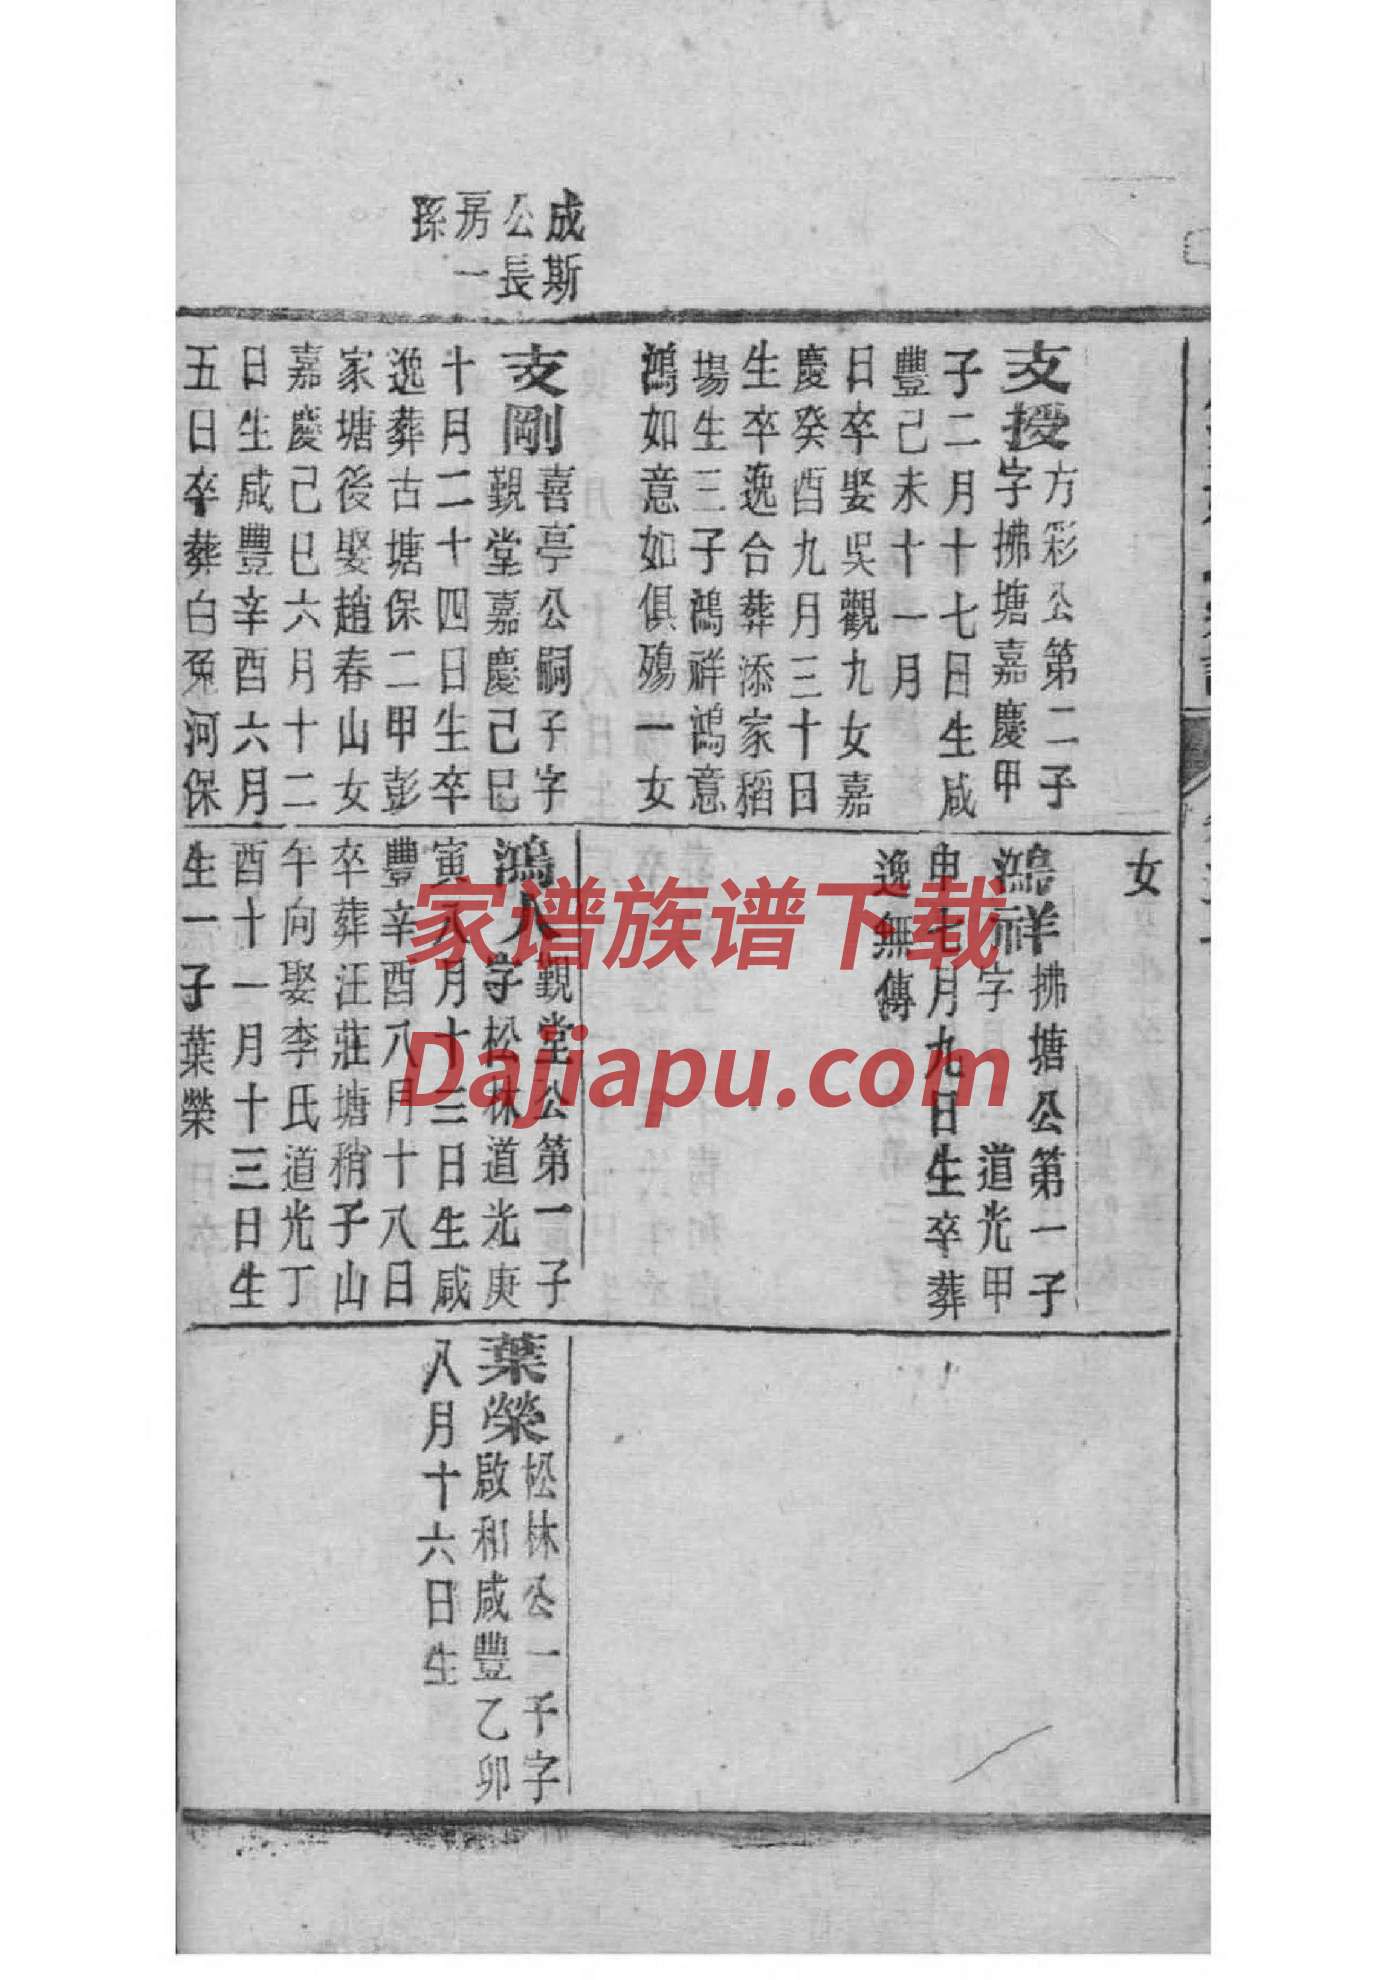 成斯
公長
房一
孫
支授方彩公第二子
字拂塘嘉慶甲
子二月十七日生咸
豐己未十一月
日卒娶吳觀九女嘉
慶癸酉九月三十日
生卒逸合葬添家稻
場生三子鴻祥鴻意
鴻如意如俱殤一女
女
鴻祥拂塘公第一子
字 道光甲
申七月九日生卒葬
逸無傳
支剛喜亭公嗣子字
觀堂嘉慶己巳
十月二十四日生卒
逸葬古塘保二甲彭
家塘後娶趙春山女
嘉慶己巳六月十二
日生咸豐辛酉六月
五日卒葬白兔河保
鴻人觀堂公第一子
字松林道光庚
寅八月十三日生咸
豐辛酉八月十八日
卒葬汪莊塘稍子山
午向娶李氏道光丁
酉十一月十三日生
生一子葉榮
葉榮松林公一子字
啟和咸豐乙卯
八月十六日生
家谱族谱下载
Dajiapu.com